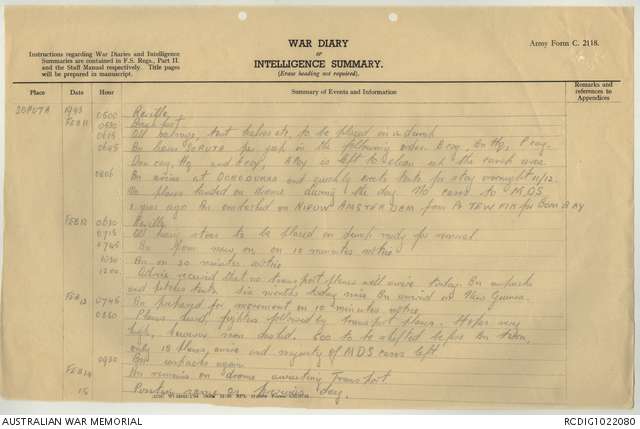 Instructions regarding War Diaries and Intelligence
Summaries are contained in F.S. Regs., Part II.
and the Staff Manual respectively. Title pages
will be prepared in manuscript.
WAR DIARY
or
INTELLIGENCE SUMMARY.
(Erase heading not required).
Army Form C. 2118.
Place Date Hour Summary of Events and Information Remarks and references to Appendices
SOPUTA 1943
FEB 11 0500 Reveille
0530 Breakfast
0615 All baggage, tent halves etc, to be placed in a dump
0645 Bn leave SOPUTA for in the following order. B coy, Bn Hq,
Don coy, Hq and Ecoy. A Coy is left to clean up the camp area
0806 Bn arrive at DOBODURAS and quickly erects tents for stay overnight 11/12.
No planes landed on drome during the day. No cases to MDS
years ago Bn embarked on NIEUW AMSTERDAM from for BOMBAY
FEB 12 0630 Reveille
0715 All heavy stores to be placed on dump ready for removal
0745 Bn from now on on 10 minutes notice
1030 Bn on 30 minutes notice
1200 Advice received that no transport planes will arrive today. Bn unpacks
and pitches tents. Six months today since Bn arrived in New Guinea.
FEB 13 0745 Bn prepared for movement on 10 minutes notice
0830 Planes heard, fighters followed by transport planes. Hopes very
high, however soon dashed. 600 to be shifted before Bn taken,
only 18 planes arrive and majority of MDS cases left
0930 Bn unpacks again.
FEB 14 Bn remains on drome awaiting Transport
15 Position same as previous day.
AUSTRALIAN WAR MEMORIAL
RCDIG1022080